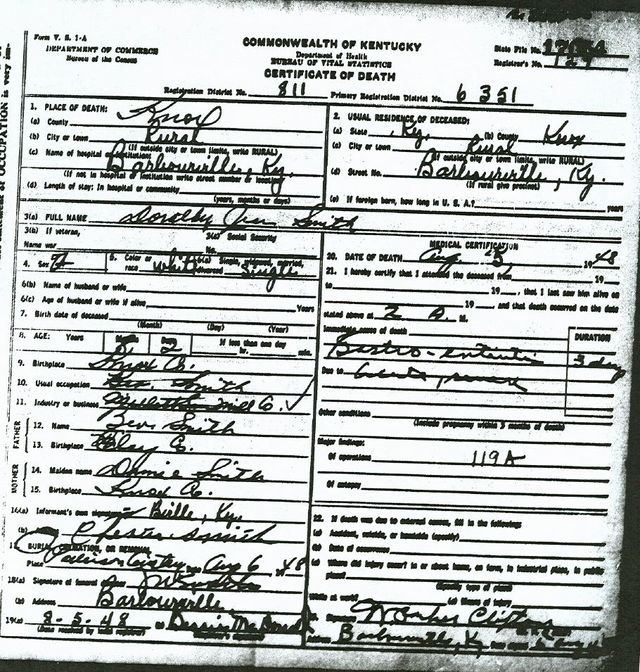 Form V. S. 1-A
DEPARTMENT OF COMMERCE
Bureau of the Census
COMMONWEALTH OF KENTUCKY
Department of Health
BUREAU OF VITAL STATISTICS
CERTIFICATE OF DEATH
State File No.
Registrar's No. 129
Registration District No. 811 Primary Registration District No. 6351
OCCUPATION is very im-
1. PLACE OF DEATH:
(a) County Knox
(b) City or town Rural
(If outside city or town limits, write RURAL)
(c) Name of hospital or institution: Barbourville, Ky.
(If not in hospital or institution write street number or location)
(d) Length of stay: In hospital or community
(years, months or days)
2. USUAL RESIDENCE OF DECEASED:
(a) State Ky. (b) County Knox
(c) City or town Rural
(If outside city or town limits, write RURAL)
(d) Street No. Barbourville, Ky.
(If rural give precinct)
(e) If foreign born, how long in U. S. A.? years
3(a) FULL NAME Dorothy Smith
3(b) If veteran, Name war
3(c) Social Security No.
4. Sex F 5. Color or race White 6(a) Single, widowed, married, divorced Single
6(b) Name of husband or wife
6(c) Age of husband or wife if alive Years
7. Birth date of deceased
(Month) (Day) (Year)
8. AGE: Years Months Days 2 If less than one day hr. min.
9. Birthplace Knox Co.
10. Usual occupation Smith
11. Industry or business Mill Co.
FATHER
12. Name Bev. Smith
13. Birthplace Clay Co.
MOTHER
14. Maiden name Smith
15. Birthplace Knox Co.
16(a) Informant's own signature Ky.
(b) Chester Smith
17. BURIAL, CREMATION, OR REMOVAL
Place Aug 6 1948
18(a) Signature of funeral director
(b) Address Barbourville
19(a) 8-5-48 (b)
(Date received by local registrar) (Registrar's signature)
MEDICAL CERTIFICATION
20. DATE OF DEATH Aug 5 1948
21. I hereby certify that I attended the deceased from
to 19, that I last saw him alive on
19, and that death occurred on the date
stated above at 2 A. M.
Immediate cause of death
DURATION
Gastro-enteritis 3 day
Due to
Other conditions
(Include pregnancy within 3 months of death)
Major findings:
Of operations 119A
Of autopsy
22. If death was due to external causes, fill in the following:
(a) Accident, suicide, or homicide (specify)
(b) Date of occurrence
(c) Where did injury occur? in or about home, on farm, in industrial place, in public place?
(Specify type of place)
While at work? (e) Means of injury
Signature Clifton
Address Barbourville, Ky.